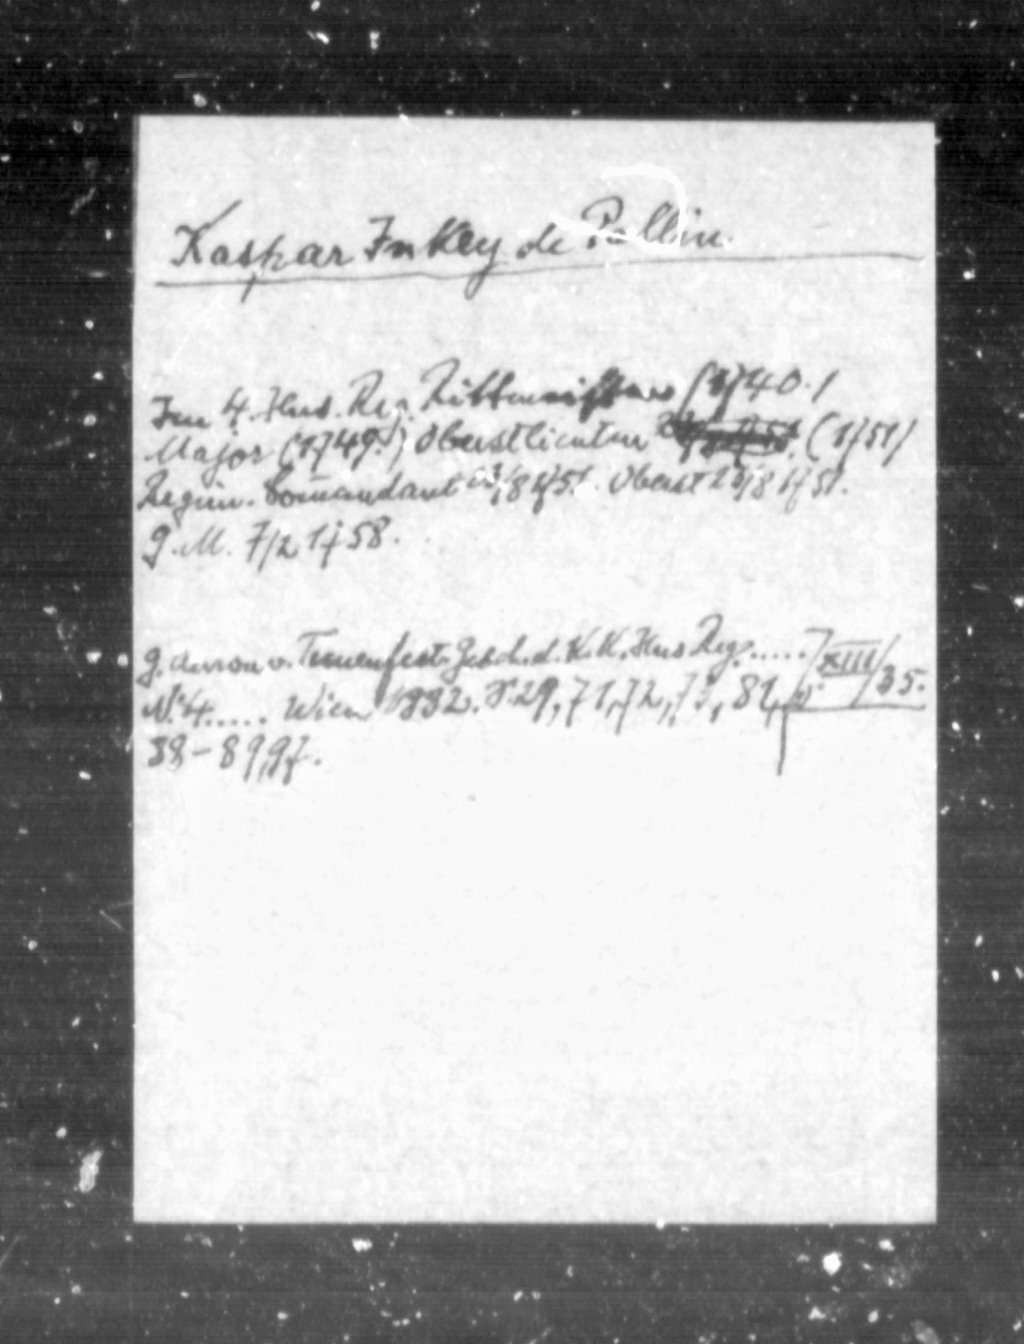 Kaspar Inkey de Pallin.
Im 4. Hus. Reg. Rittmeister (1740.)
Major (1749.) Oberstlieutn (1751)
Regim. Commandant 23/8 1751. Oberst 23/8 1751.
G.M. 7/2 1758.
G. Amon v. Treuenfest. Gesch. d. K.K. Hus Reg. ..... XIII/35.
N. 4 ..... Wien 1882. S. 29, 71, 72, 75, 81,
88-89, 97.